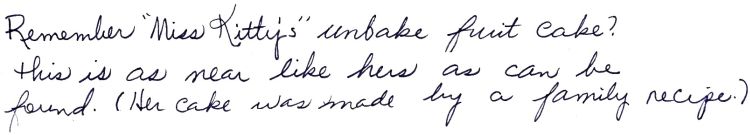 Remember "Miss Kitty's" unbake fruit cake?
this is as near like hers as can be
found. (Her cake was made by a family recipe.)